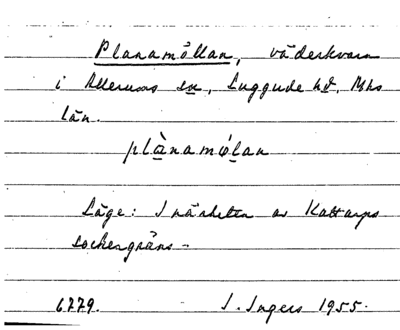 Planamöllan, väderkvarn
i Allerums sn, Luggude hd, Mhs
län.
plànamǿlan
Läge: I närheten av Kattarps
sockengräns -
6779. I. Ingers 1955.